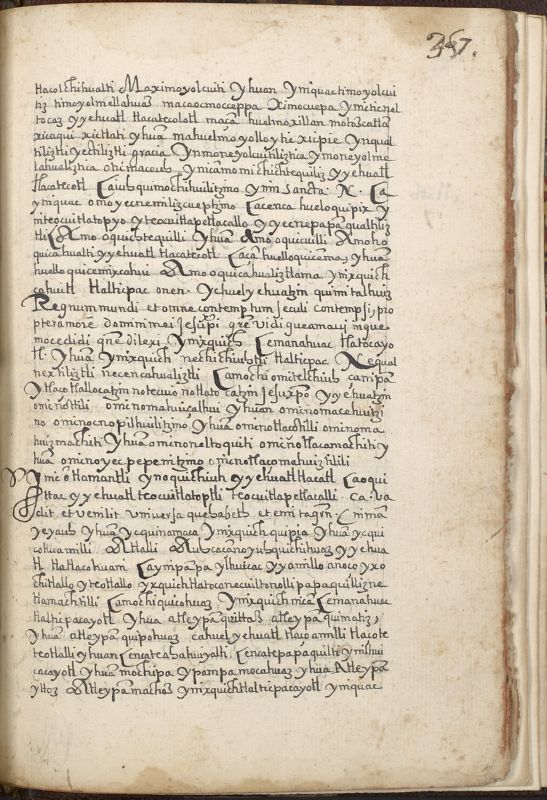 357.
tlacolchihualti Maximoyolcuiti yhuan yniquac timoyolcui
tiz timoyolmellahuas macaocmoceppa ximocuepa ynitic nel
tocaz yyehuatl tlacatecolotl maca huelmoxillan motoscatla
xicaqui xictlati yhua mahuelmoyolloytic xicpie ynqual
tiliztli yectiliztli gracia ynmoneyolcuitiliztica ymoneyolme
lahualiztica
tlacatecotl Caiuh quimochihuilitzino ynin Sancta. N. Ca
yniquac omoyecnemilizcueptzino Cacenca hueloquipix y
nteocuitlatopyo yteocuitlapetlacallo yyecnepapa qualtiliz
tli Ca Amo oquichtequilli yhua Amo oquicuilli Amo ho
quicahualti yyehuatl tlacatecotl Caca huelloquicema, yhua
huello quicemixcahui Amo oquicahualiztlama ynixquich
cahuitl tlalticpac onen. ychuelyehuatzin quimitalhuiz
Regnum mundi et omne contemptum seculi contempsi, pro
pter amore domini mei Jesuxpi que vidi quem amavi inque
mocedidi que dilexi ynixquich Cemanahuac tlatocayo
tl. yhua ynixquich nechichiuhtli tlalticpac Nequal
nextiliztli necencahualiztli Camochi omitelchiuh canipa
ytlaçotlallocatzin notecuio notlatocatzin Jesuxpo yyehuatzin
oninottili oninomahuiçalhui yhuan oninomacehuitzi
no oninocnopilhuilitzino yhua oninotlaçotilli oninoma
huizmachiti yhua oninoneltoquiti oninotlacamachiti y
hua oninoyecpepenitzino oninotlaçomahuiztilili
ynic otlamantli ynoquichiuh yyehuatl tlacatl Caoqui
ittac yyehuatl teocuitlatoptli teocuitlapetlacalli. Ca. Va
dit et vendit universa que habet et emit agrum. Cniman
yeyauh yhua yequinamaca ynixquich quipia yhua yequi
cohua milli Atlalli Auh cacanoyuhquichihuaz yyehua
tl tlatlacohuani Caynipampa ylhuicac yyamillo anoço yxo
chitlallo yteotlallo yxquich tlatocanecuiltonolli papaquilliz ne
tlamachtilli Camochi quicohuaz ynixquich nica Cemanahuac
tlalticpacayotl yhua atleypa quittas atleypa quimatiz,
yhua atleypa quipohuaz cahuelyehuatl tlaçomilli tlaçote
teotlalli yhuan Cencateahahuyalti. Cencatepapaquilti ynilhui
cacayotl yhua mochipa ypampa mocahuaz yhua Atleypa
yttoz Atleypa machos ynixquich tlalticpacayotl yniquac